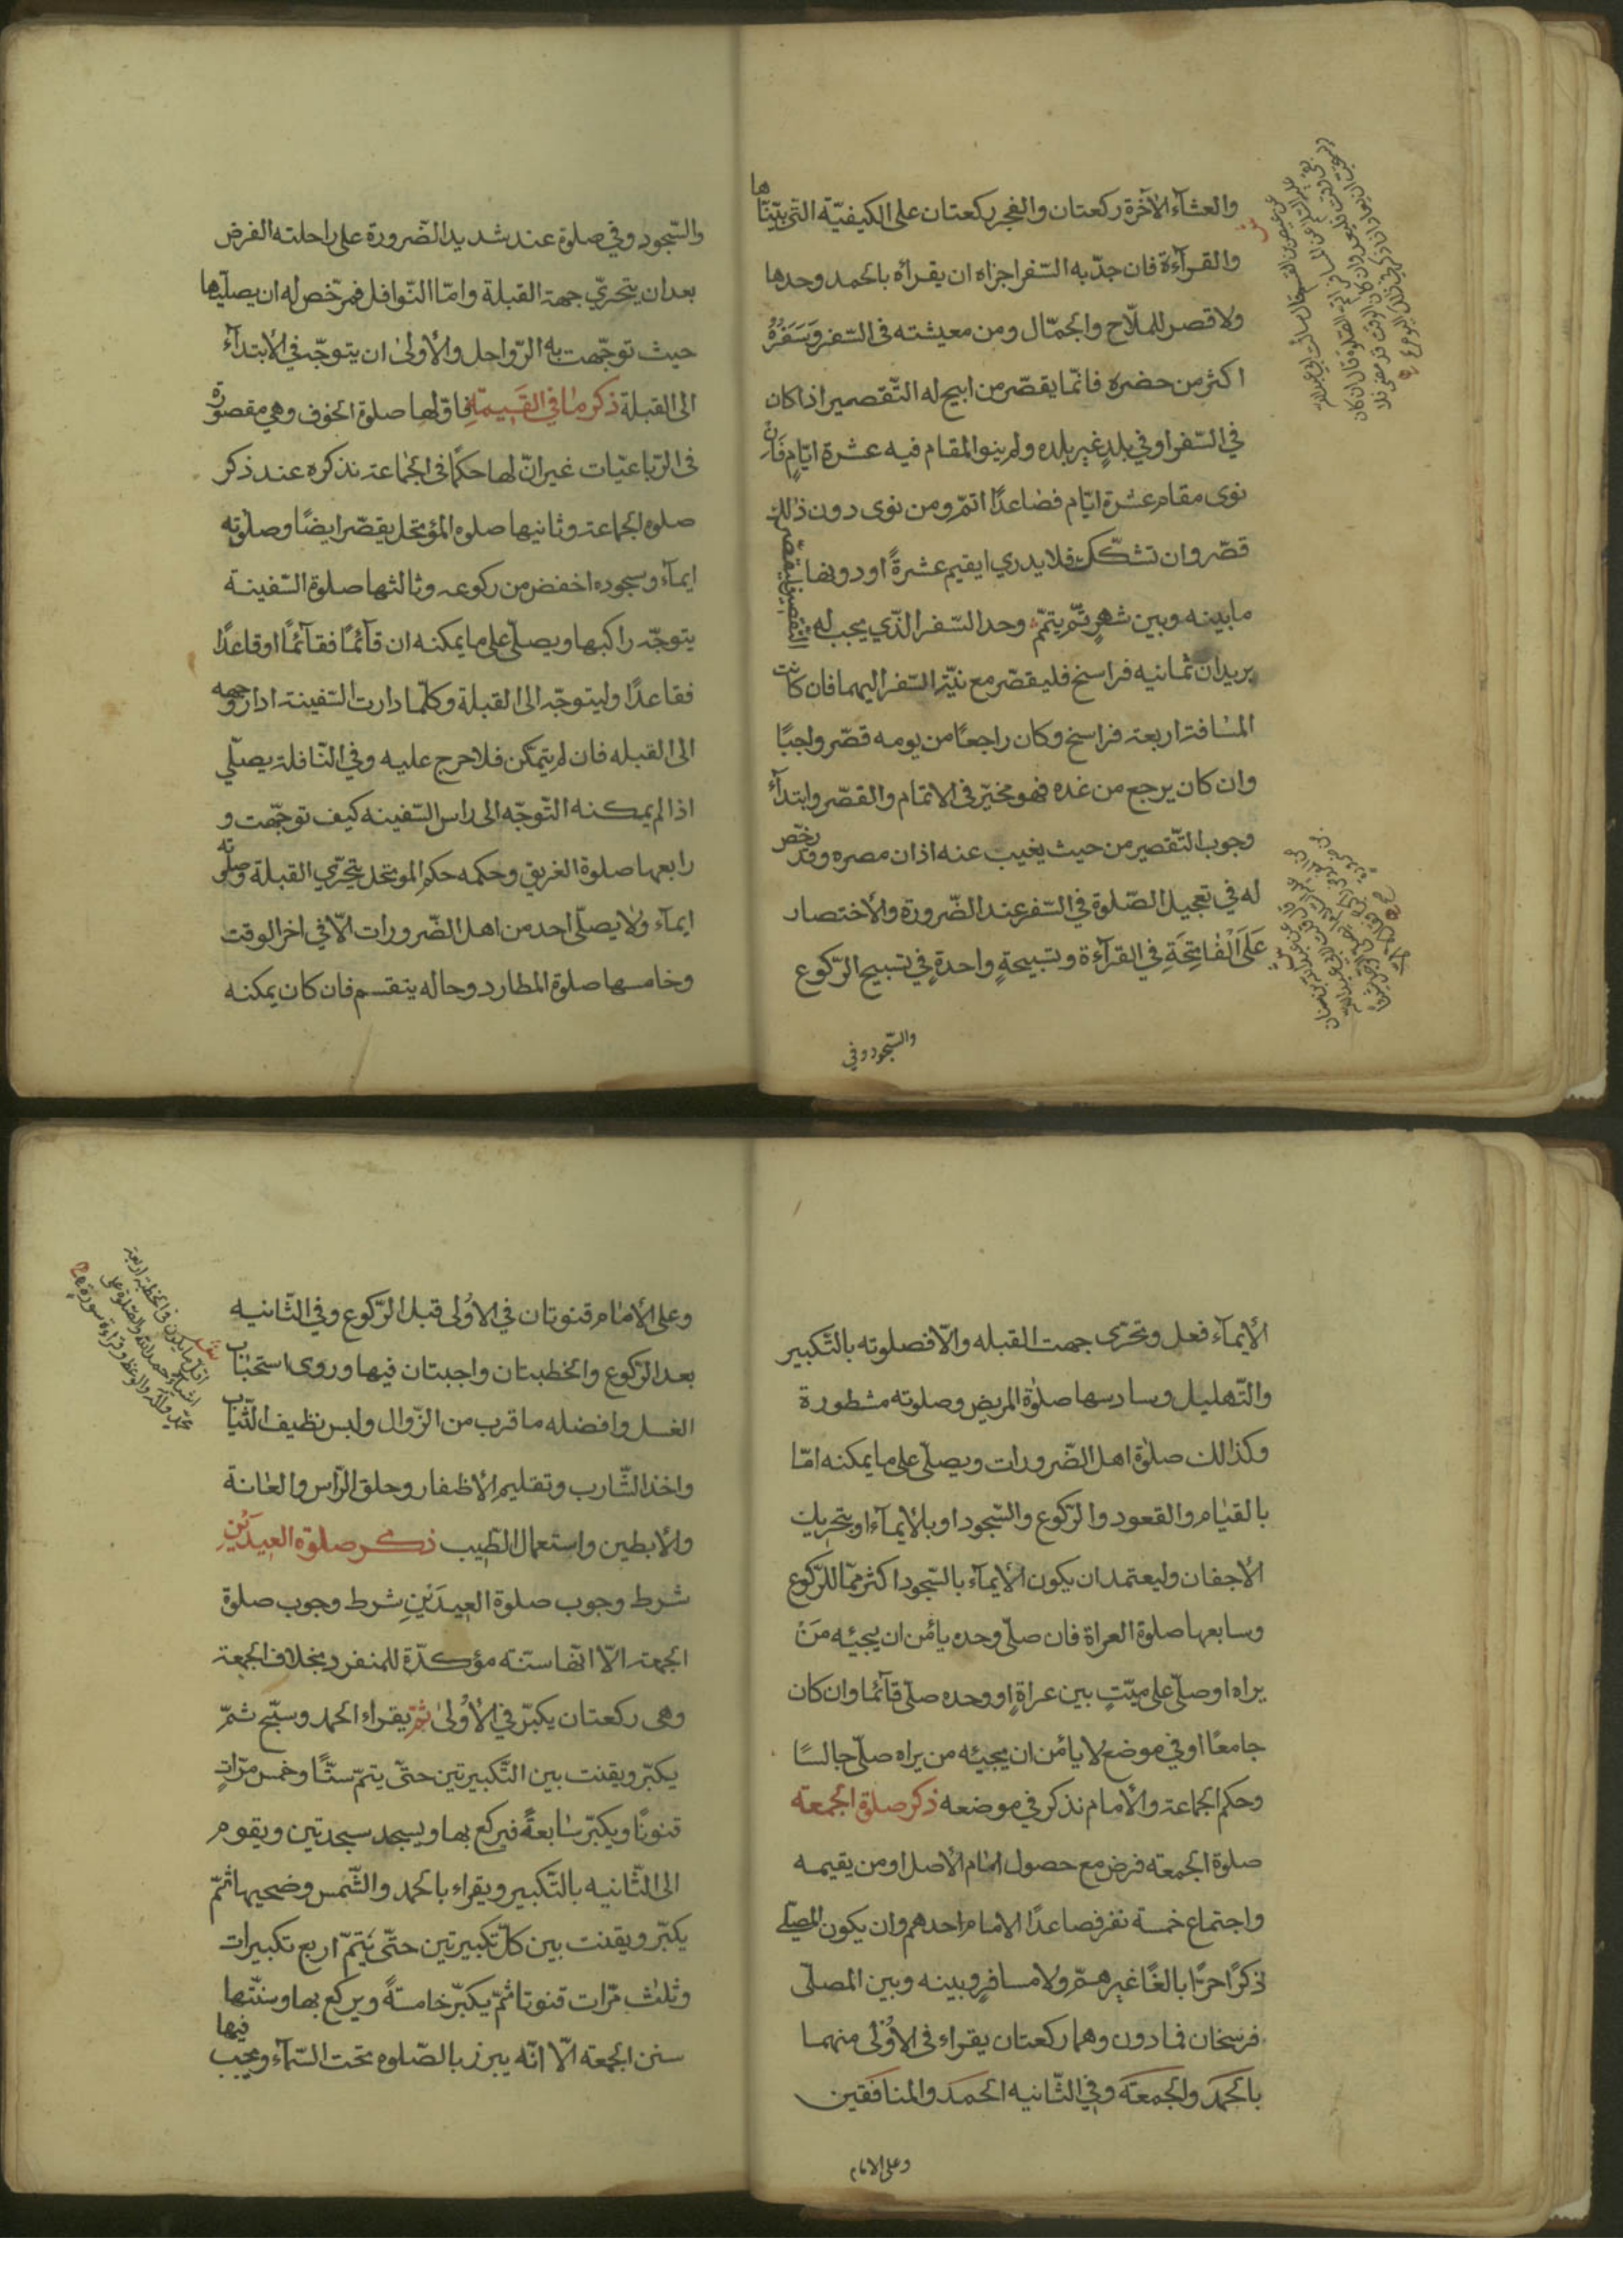 والعشآء الآخرة ركعتان والفجر ركعتان على الكيفيّة التي بيّنّاها
والقرآءة فان جدّ به السّفر اجزاه ان يقرأه بالحمد وحدها
ولا قصر للملّاح والجمّال ومن معيشته في السّفر وَسَفَرُهُ
اكثر من حضره فانّما يقصّر من ابيح له التّقصير اذا كان
في السّفر او في بلدٍ غير بلده ولم ينو المقام فيه عشرة ايّامٍ فَاِنْ
نوى مقام عشرة ايّام فصاعدًا اتمّ ومن نوى دون ذلك
قصّر وان تشكّك فلا يدري ايقيم عشرةً او دونها فليقصّر
ما بينه وبين شهرٍ ثمّ يتمّم وحد السّفر الّذي يجب له التقصير
بريدان ثمانيه فراسخ فليقصّر مع نيّة السّفر اليهما فان كانت
المسافة اربعة فراسخ وكان راجعًا من يومه قصّر واجبًا
وان كان يرجع من غده فهو مخيّر في الاتمام والقصّر وابتدآء
وجوب التّقصير من حيث يغيب عنه اذان مصره وقد رخّص
له في تعجيل الصّلوة في السّفر عند الضّرورة والأختصار
عَلَى الْفَاتِحَةِ في القرآءة وتسبيحةٍ واحدةٍ في تسبيح الرّكوع
والسّجود وفي
والسّجود وفي صلوة عند شديد الضّرورة على راحلته الفرض
بعد ان يتحرّي جهة القبلة وامّا النّوافل فمرخّص له ان يصلّيها
حيث توجّهت به الرّواحل والأولى ان يتوجّه في الأبتدآء
الى القبلة ذكر ما في القَسِيمَة فاوّلها صلوة الخوف وهي مقصورة
في الرّباعيّات غير انّ لها حكمًا في الجماعة نذكره عند ذكر
صلوه الجماعة وثانيها صلوه المؤتحل يقصّر ايضًا وصلوته
ايمآء وسجوده اخفض من ركوعه وثالثها صلوة السّفينة
يتوجّه راكبها ويصلّي على ما يمكنه ان قآئمًا فقآئمًا اوقاعدًا
فقاعدًا وليتوجّه الى القبلة وكلّما دارت السّفينة ادار وجهه
الى القبله فان لم يتمكّن فلا حرج عليه وفي النّافلة يصلّي
اذا لم يمكنه التّوجّه الى راس السّفينه كيف توجّهت و
رابعها صلوة الغريق وحكمه حكم الموتحل يتحرّي القبلة وصلوته
ايمآء ولا يصلّي احد من اهل الضّرورات الّا في اخر الوقت
وخامسها صلوة المطارد وحاله ينقسم فان كان يمكنه
الأيمآء فعل وتحرّى جهت القبله والّا فصلوته بالتّكبير
والتّهليل وسادسها صلوٰة المريض وصلوته مشطورة
وكذالك صلوٰة اهل الضّرورات ويصلّي على ما يمكنه امّا
بالقيام والقعود والرّكوع والسّجود او بالأيمآء او بتحريك
الأجفان وليعتمد ان يكون الأيمآء بالسّجود اكثر ممّا للرّكوع
وسابعها صلوة العراة فان صلّى وحده يأمن ان يجيئه مَنْ
يراه او صلّى على ميّتٍ بين عراةٍ او وحده صلّى قآئما وان كان
جامعًا او في موضع لا يأمن ان يجيئه من يراه صلّى جالسًا
وحكم الجماعة والأمام نذكر في موضعه ذكر صلوة الجمعة
صلوة الجمعته فرض مع حصول امام الأصل او من يقيمه
واجتماع خمسة نفر فصاعدًا الامام احدهم وان يكون المصلّي
ذكرًا حرًّا بالغًا غير همّ ولا مسافر وبينه وبين المصلّى
فرسخان فما دون وهما ركعتان يقراء في الأوُلى منهما
بالحَمَد والجمعَة وفي الثّانيه الحمَد والمنافقين
وعلى الامام
وعلى الأمام قنوتان في الاوُلى قبل الرّكوع وفي الثّانيه
بعد الرّكوع والخطبتان واجبتان فيها وروى استحباب
الغسل وافضله ما قرب من الزّوال ولبس نظيف الثّياب
واخذ الشّارب وتقليم الأظفار وحلق الرّأس والعانة
والأبطين واستعمال الطّيب ذكر صلوة العيدَيْنِ
شرط وجوب صلوة العيدَيْنِ شرط وجوب صلوة
الجمعة الّا انّها سنّة مؤكّدة للمنفرد بخلاف الجمعة
وهى ركعتان يكبّر في الأوُلىٰ ثمّ يقراء الحمد وسبّح ثمّ
يكبّر ويقنت بين التّكبيرتين حتّى يتمّ ستًّا وخمس مرّاتٍ
قنوتًا ويكبّر سابعةً فيركع بها ويسجد سجدتين ويقوم
الى الثّانيه بالتّكبير ويقراء بالحمد والشّمس وضحيها ثمّ
يكبّر ويقنت بين كلّ تكبيرتين حتّى يتمّ اربع تكبيرات
وثلث مرّات قنوتا ثمّ يكبّر خامسةً ويركع بها وسنّتها
سنن الجمعه الّا انّه يبرز بالصّلوه تحت السّمآء ويجب فيها
اقلّ ما يكون في الخطبة اربعة
اشياء حمد الله والصّلوة على
محمّد وآله والوعظ وقراءة سورة